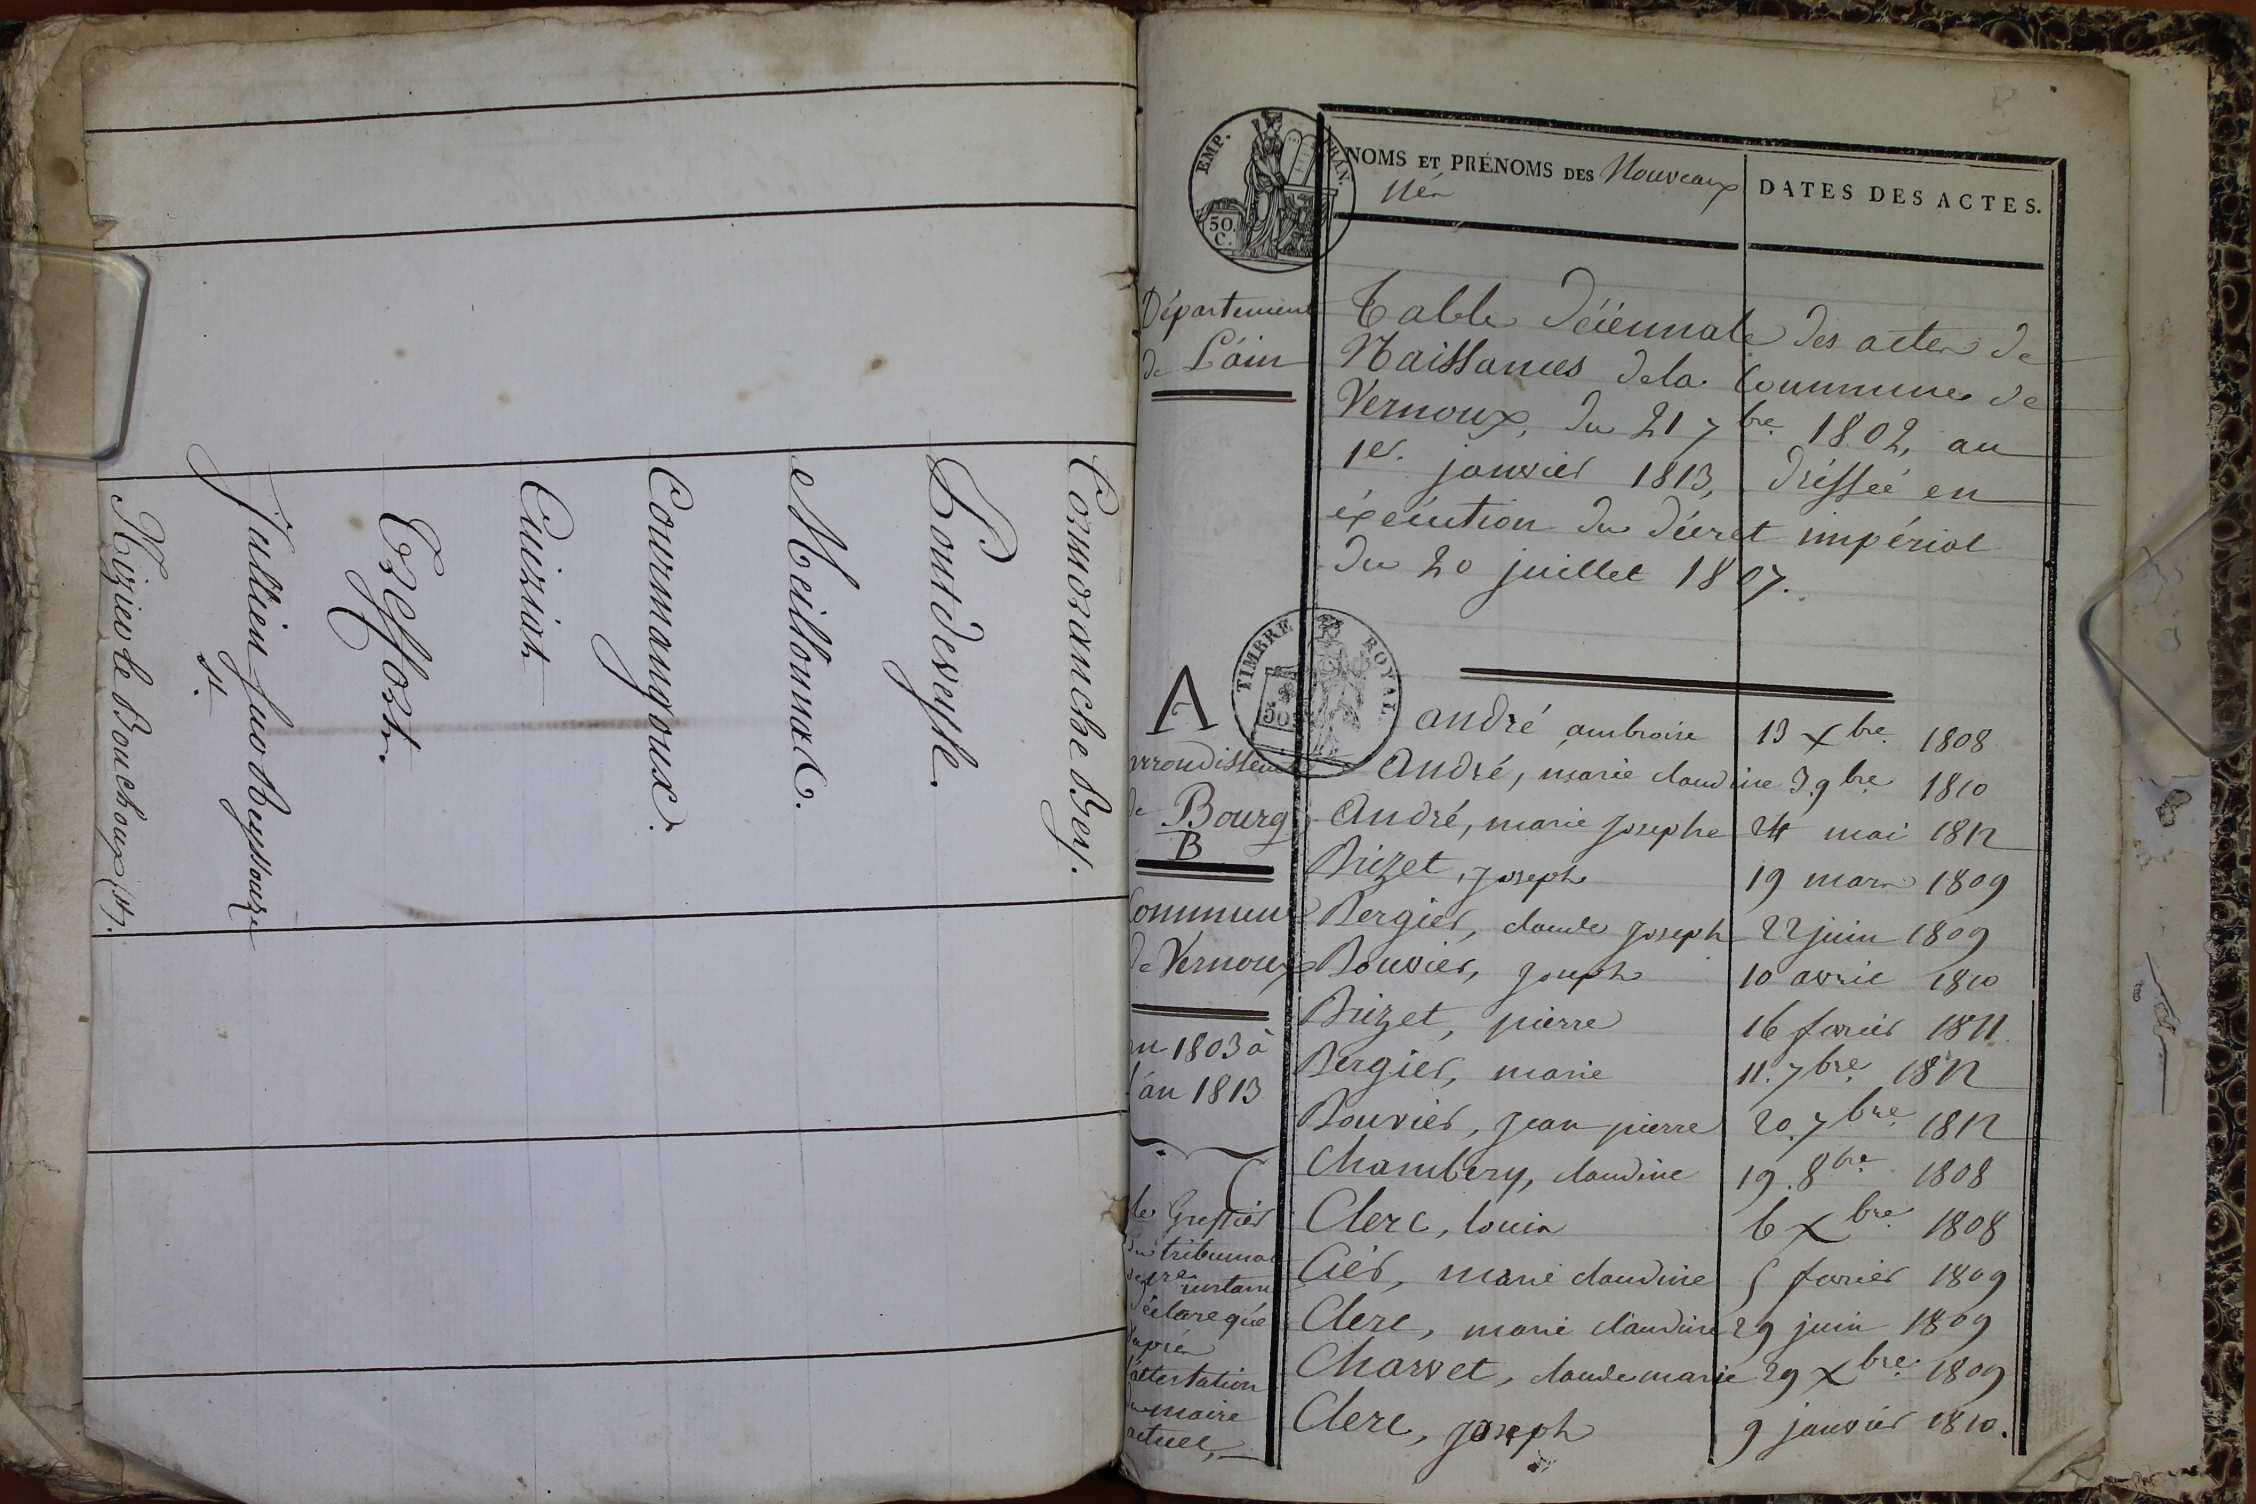 Cormoranche Bey.
Pontdeveyle.
Meillonnaz C.
Courmangoux.
Cuisiat
Treffort.
Jullien sur Reyssouze
st.
Nizier le Bouchoux (St).
EMP. FRAN.
50.
C.
NOMS ET PRÉNOMS DES Nouveaux
Nés
DATES DES ACTES.
Département
de L'ain
Table décennale des actes de
Naissances de la Commune de
Vernoux, du 21 7bre 1802, au
1er. janvier 1813, dréssée en
éxécution du décret impérial
du 20 juillet 1807.
TIMBRE ROYAL
50
A
rrondissem
de Bourg
B
Commune
de Vernoux
an 1803 à
l'an 1813
C
le Greffier
du tribunal
de 1re instan
déclare que
d'après
l'attestation
du maire
actuel,
andré ambroise 13 Xbre. 1808
André, marie claudine 3. 9bre. 1810
André, marie Josephe 24 mai 1812
Brizet, Joseph 19 mars 1809
Bergier, claude Joseph 22 juin 1809
Bouvier, Joseph 10 avril 1810
Brizet, pierre 16 fevrier 1811.
Bergier, marie 11. 7bre. 1812
Bouvier, Jean pierre 20. 7bre. 1812
Chambery, claudine 19. 8bre. 1808
Clerc, louis 6 Xbre. 1808
Cier, marie claudine 5 fevrier 1809
Clerc, marie claudine 29 juin 1809
Charvet, claude marie 29 Xbre. 1809
Clerc, Joseph 9 janvier 1810.